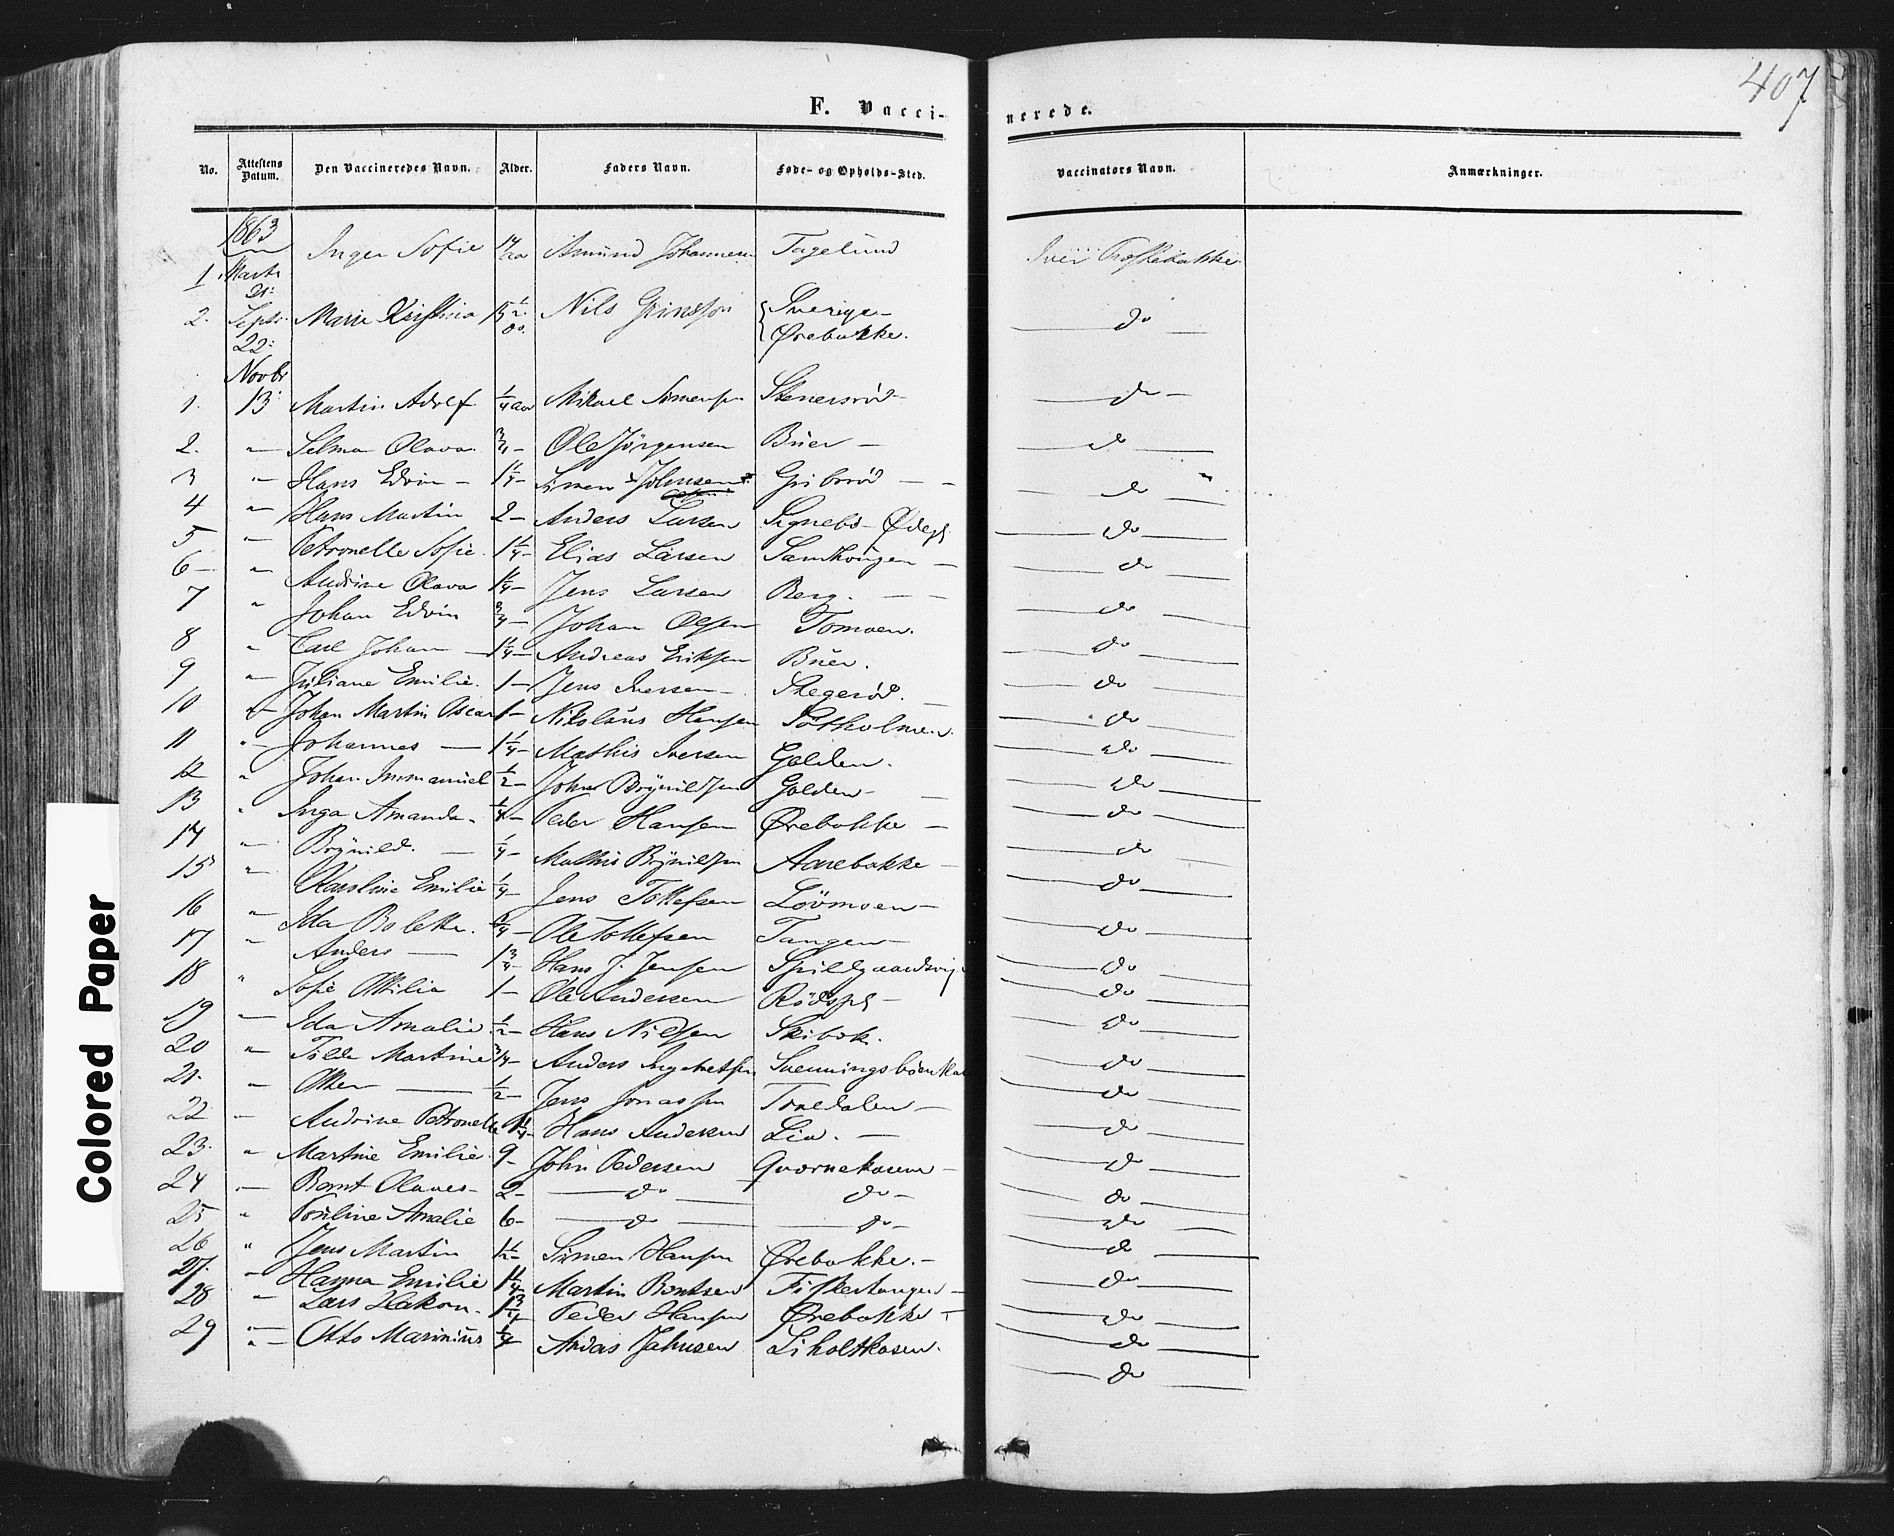 407
F. Vaccinerede.
No. Attestens Datum. Den Vaccineredes Navn. Alder. Faders Navn. Føde- og Opholds-Sted. Vaccinators Navn. Anmærkninger.
1863
1. Marts 21: Inger Sofie Amund Johannesen Tagelund Iver
2. Septr. 22: Marie Kristina 15 1/2 Nils Sverige- Ørebakke. do
Novbr
1. 13 Martin Adolf 1/4 aar Mikael Simensen Stenersrød- do
2. " Selma Olava 3/4 Ole Jörgensen Buer do
3 " Hans Edvin 1 1/4 Simen Johnsen Gribsrød do
4 " Hans Martin 2 Anders Larsen Signebø- do
5 " Petronelle Sofie 1 1/4 Elias Larsen do
6 " Andrine Olava 1 1/4 Jens Larsen Berg. do
7 " Johan Edvin 3/4 Johan Olsen Tomoen. do
8 " Carl Johan 1 1/4 Andreas Eriksen Buer. do
9 " Juliane Emilie 1 Jens Iversen Stegerød. do
10 " Johan Martin Oscar 1 Nikolaus Hansen Sotholmen. do
11 " Johannes 1 1/4 Mathis Iversen Golden. do
12 " Johan Immanuel 1/2 Johan Brynildsen Golden do
13 " Inga Amanda 1/4 Peder Hansen Ørebakke do
14 " Brynild. 1/4 Mathis Brynildsen Aarebakke do
15 " Karoline Emilie 1/4 Jens Tollefsen Lövmoen do
16 " Ida Bolette. Ole Tollefsen Tangen do
17 " Anders 1 3/4 Hans J. Jensen Spildgaardsvig do
18 " Sofie Ottilia 1 Ole Andersen do
19 " Ida Amalie 1/2 Hans Nilsen Skibak. do
20 " Tilla Martine 3/4 Anders do
21. " 1/2 Jens Jonassen Troedalen do
22 " Andrine Petronelle 1 1/4 Hans Andersen Lia. do
23. " Martine Emilie 9 John Pedersen Qvarnekasene do
24 " Bernt Olaves 2 do do do
25 " Pouline Amalie 6 do do do
26 " Jens Martin 1 1/2 Simen Hansen Ørebakke. do
27. " Hanna Emilie 1 1/4 Martin Berntsen Fisketangen do
28 " Lars Hakon 1 3/4 Peder Hansen Ørebakke do
29 " Otto Marinius 1/4 Andris Johnsen Liholtkasen. do
do
Colored Paper